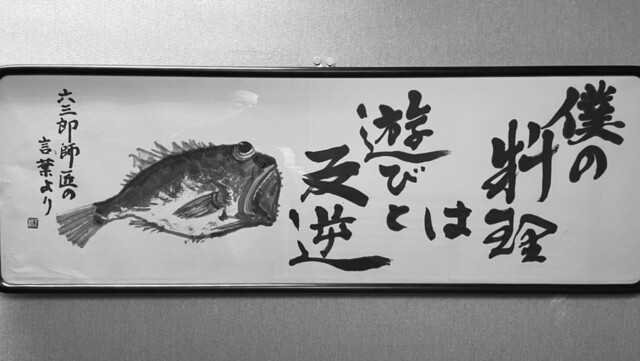 僕の
料理
は
遊びと
反逆
六三郎師匠の
言葉より